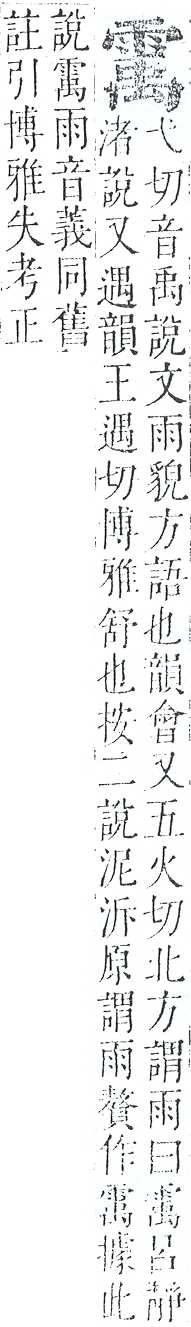 䨞
弋切音禹說文雨貌方語也韻會又五火切北方謂雨曰䨞呂靜
渚說又遇韻王遇切博雅舒也按二說泥泝原謂雨贅作䨞據此
說䨞雨音義同舊
註引博雅失考正